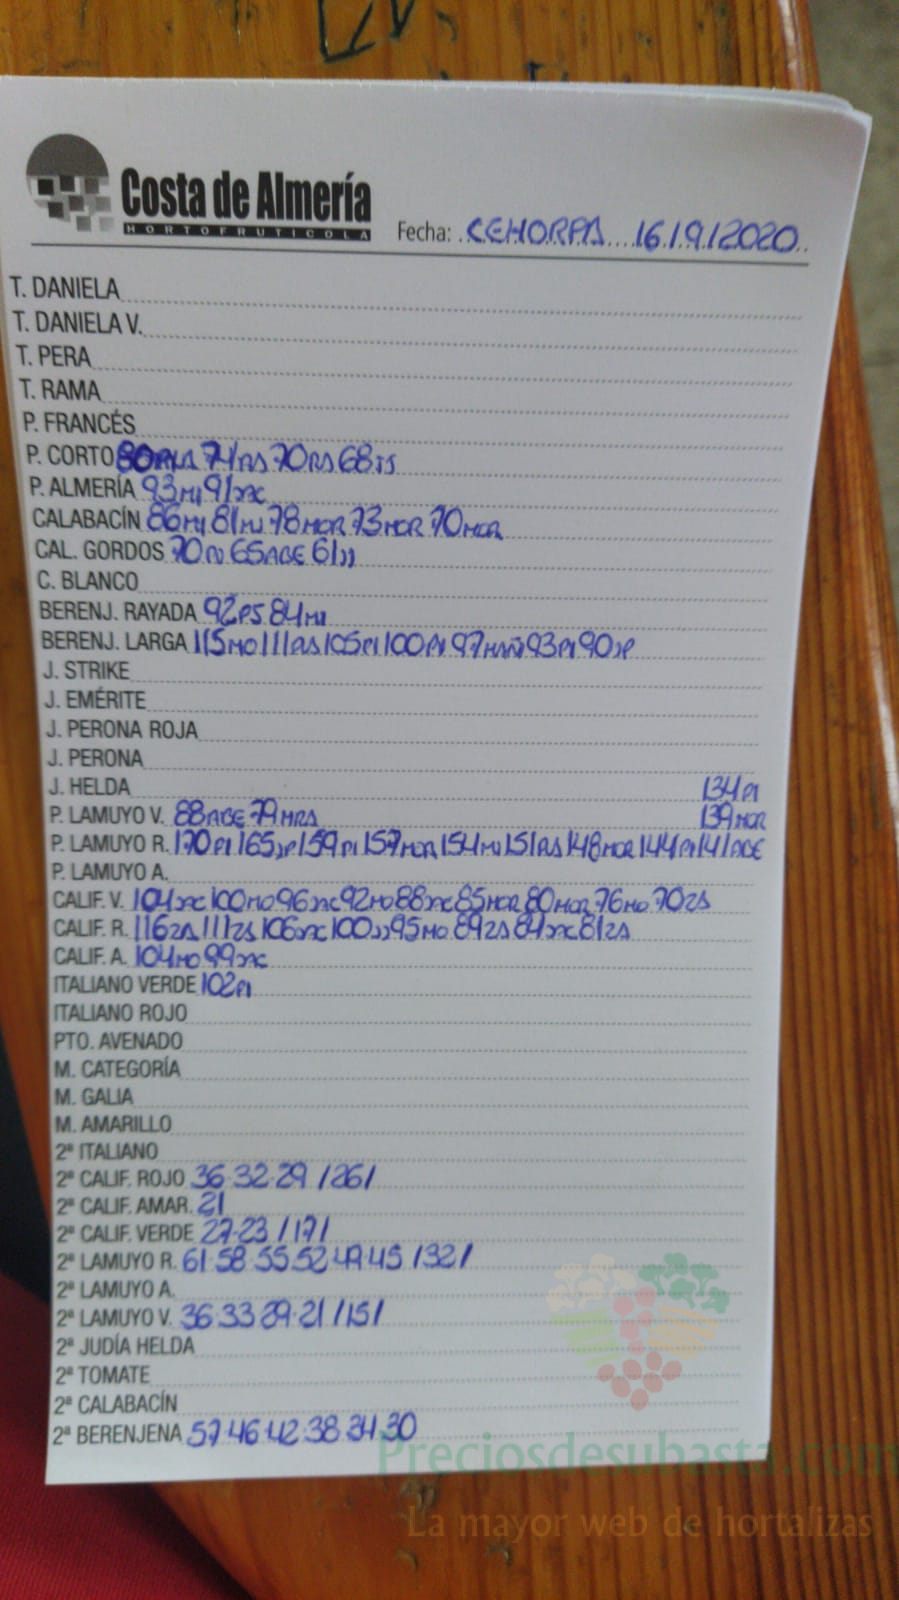 Costa de Almería
HORTOFRUTICOLA
Fecha: CEHORPA 16/9/2020
T. DANIELA
T. DANIELA V.
T. PERA
T. RAMA
P. FRANCÉS
P. CORTO 80 74 70 68
P. ALMERÍA 93MI 91
CALABACÍN 86MI 81MI 78MOR 73MOR 70MOR
CAL. GORDOS 70 65ACE 61JJ
C. BLANCO
BERENJ. RAYADA 92PS 84MI
BERENJ. LARGA 115MO 111 105PI 100PI 97 93PI 90JP
J. STRIKE
J. EMÉRITE
J. PERONA ROJA
J. PERONA
J. HELDA 134PI
P. LAMUYO V. 88ACE 79MRA 139MOR
P. LAMUYO R. 170PI 165JP 159PI 157MOR 154MI 151 148MOR 144PI 141ACE
P. LAMUYO A.
CALIF. V. 104 100MO 96 92MO 88 85MOR 80MOR 76MO 70ZA
CALIF. R. 116ZA 111ZA 106 100JJ 95MO 89ZA 84 81ZA
CALIF. A. 104MO 99
ITALIANO VERDE 102PI
ITALIANO ROJO
PTO. AVENADO
M. CATEGORÍA
M. GALIA
M. AMARILLO
2ª ITALIANO
2ª CALIF. ROJO 36·32·29 /26/
2ª CALIF. AMAR. 21
2ª CALIF. VERDE 27·23 /17/
2ª LAMUYO R. 61·58·55·52·49·45 /32/
2ª LAMUYO A.
2ª LAMUYO V. 36·33·29·21 /15/
2ª JUDÍA HELDA
2ª TOMATE
2ª CALABACÍN
2ª BERENJENA 57·46·42·38·34·30
Preciosdesubasta.com
La mayor web de hortalizas